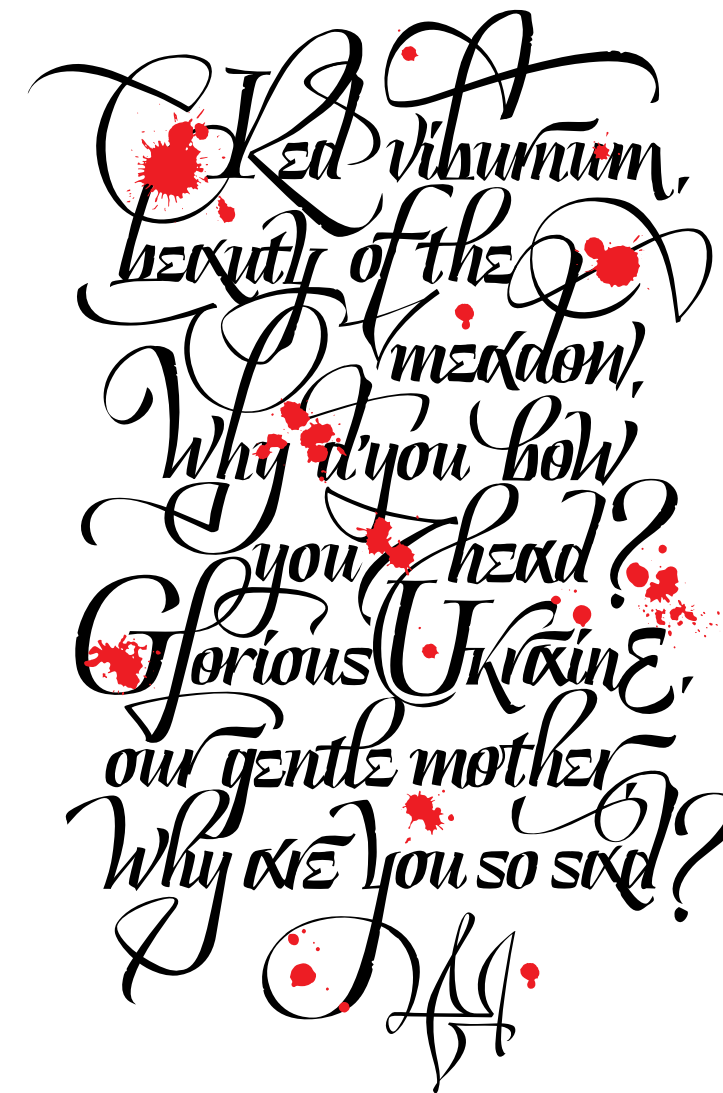 Red viburnum,
beauty of the
meadow,
Why d'you bow
you head?
Glorious Ukraine,
our gentle mother
Why are you so sad?